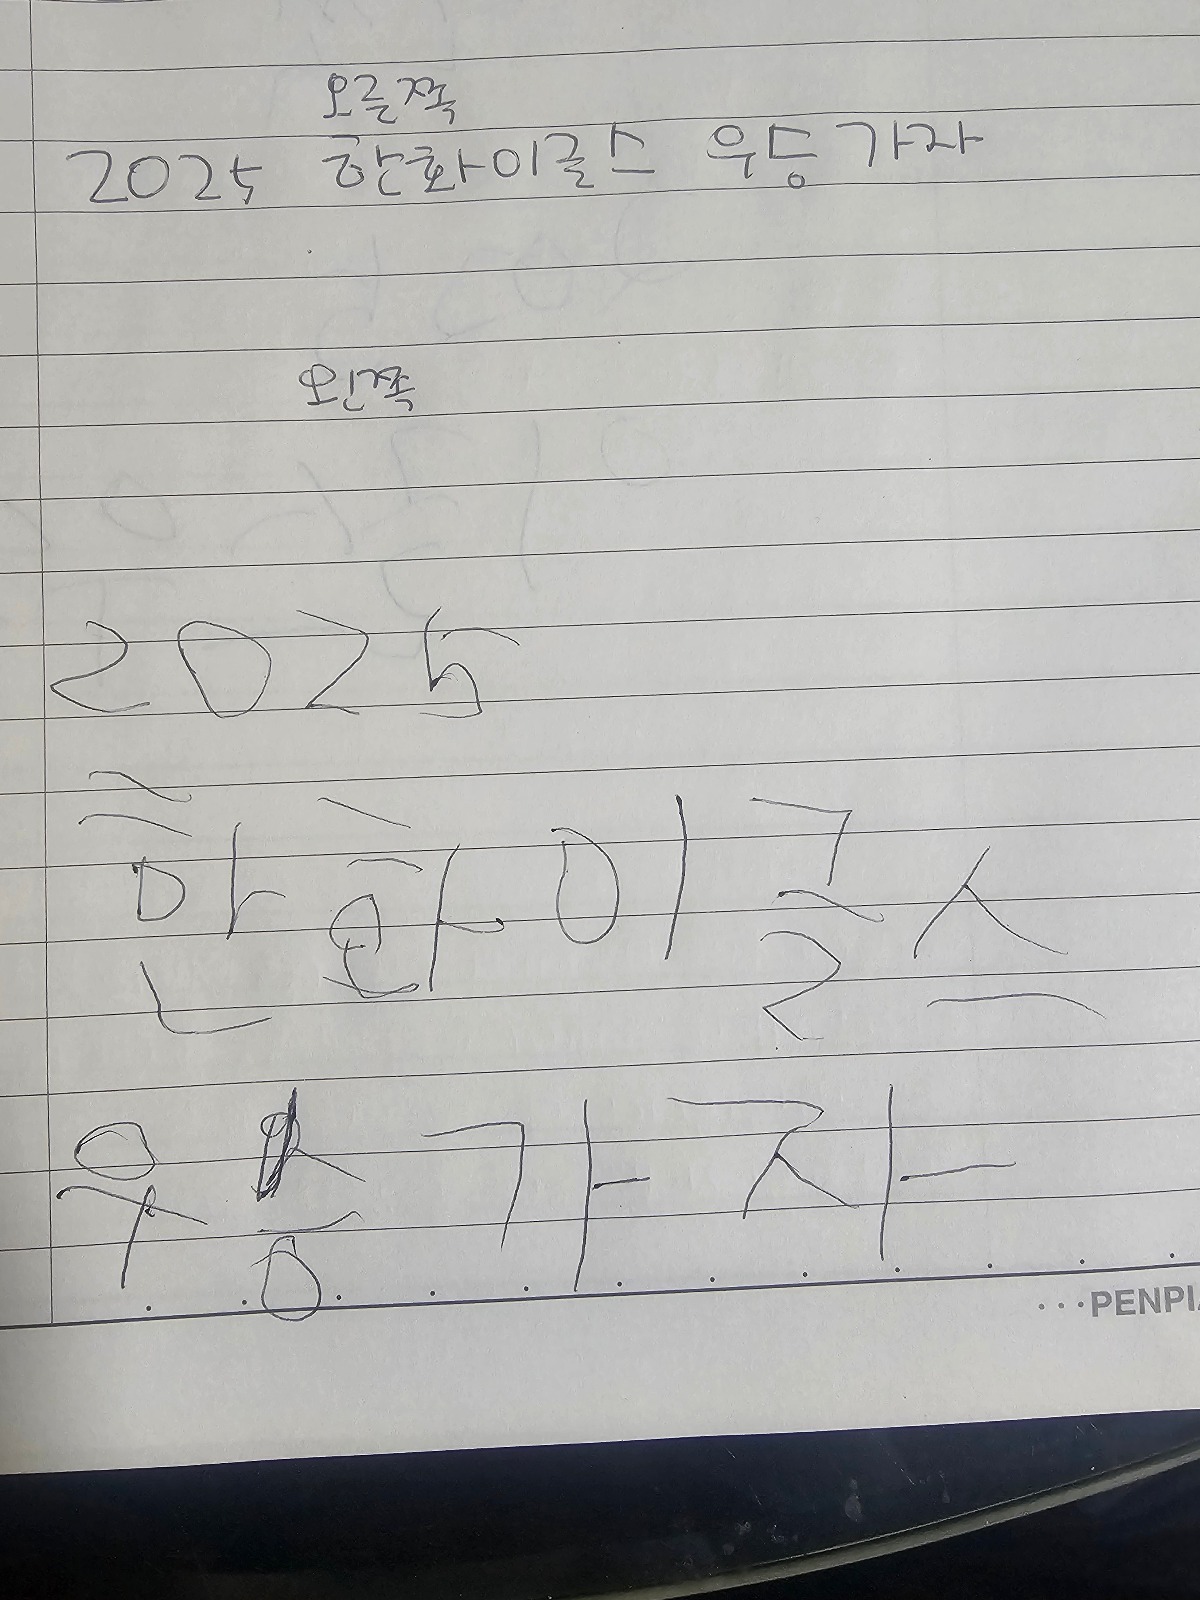 오른쪽
2025 한화이글스 우승가자
왼쪽
2025
한화이글스
우승가자
PENPIA